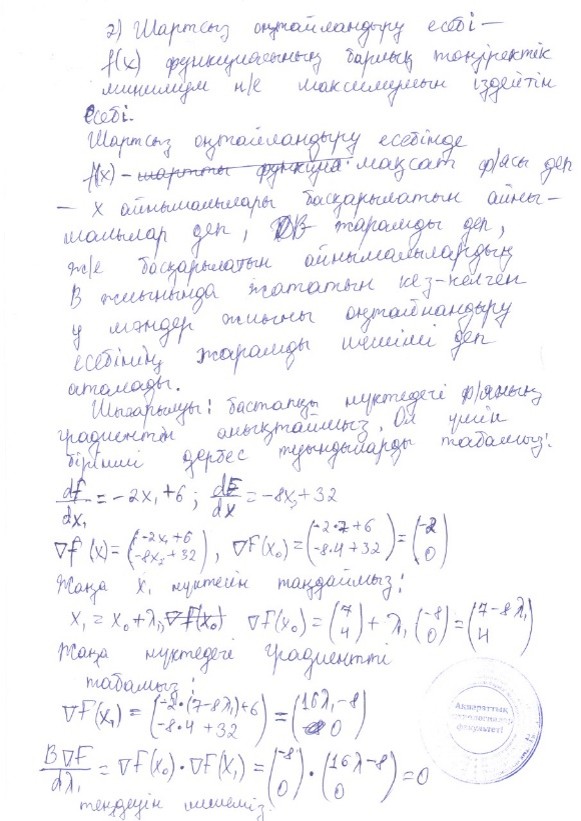 2) Шартсыз оңтайландыру есебі –
f(x) функциясының барлық төңіректік
минимум н/е максимумын іздейтін
есебі.
Шартсыз оңтайландыру есебінде
f(x) – шартты функция мақсат ф/ясы деп
– x айнымалылары басқарылатын айны–
малылар деп, DВ жарамды деп,
ж/е басқарылатын айнымалылардың
В жиынында жататын кез-келген
у мәндер жиыны оңтайландыру
есебінің жарамды шешімі деп
аталады.
Шығарылуы: бастапқы нүктедегі ф/яның
градиентін анықтаймыз. Ол үшін
бірінші дербес туындыларды табамыз:
df/dx₁ = -2x₁+6 ; dF/dx = -8x₂+32
∇f(x) = (-2x₁+6 -8x₂+32), ∇F(x₀) = (-2·7+6 -8·4+32) = (-2 0)
Жаңа x₁ нүктесін таңдаймыз:
x₁ = x₀+λ₁ ∇f(x₀) ∇F(x₀) = (7 4) + λ₁(-8 0) = (7-8λ₁ 4)
Жаңа нүктедегі градиентті
табамыз:
∇F(x₁) = (-2·(7-8λ₁)+6 -8·4+32) = (16λ₁-8 0)
B∇F/dλ₁ = ∇F(x₀)·∇F(x₁) = (-8 0)·(16λ-8 0) = 0
теңдеуін шешеміз.
Ақпараттық
технологиялар
факультеті